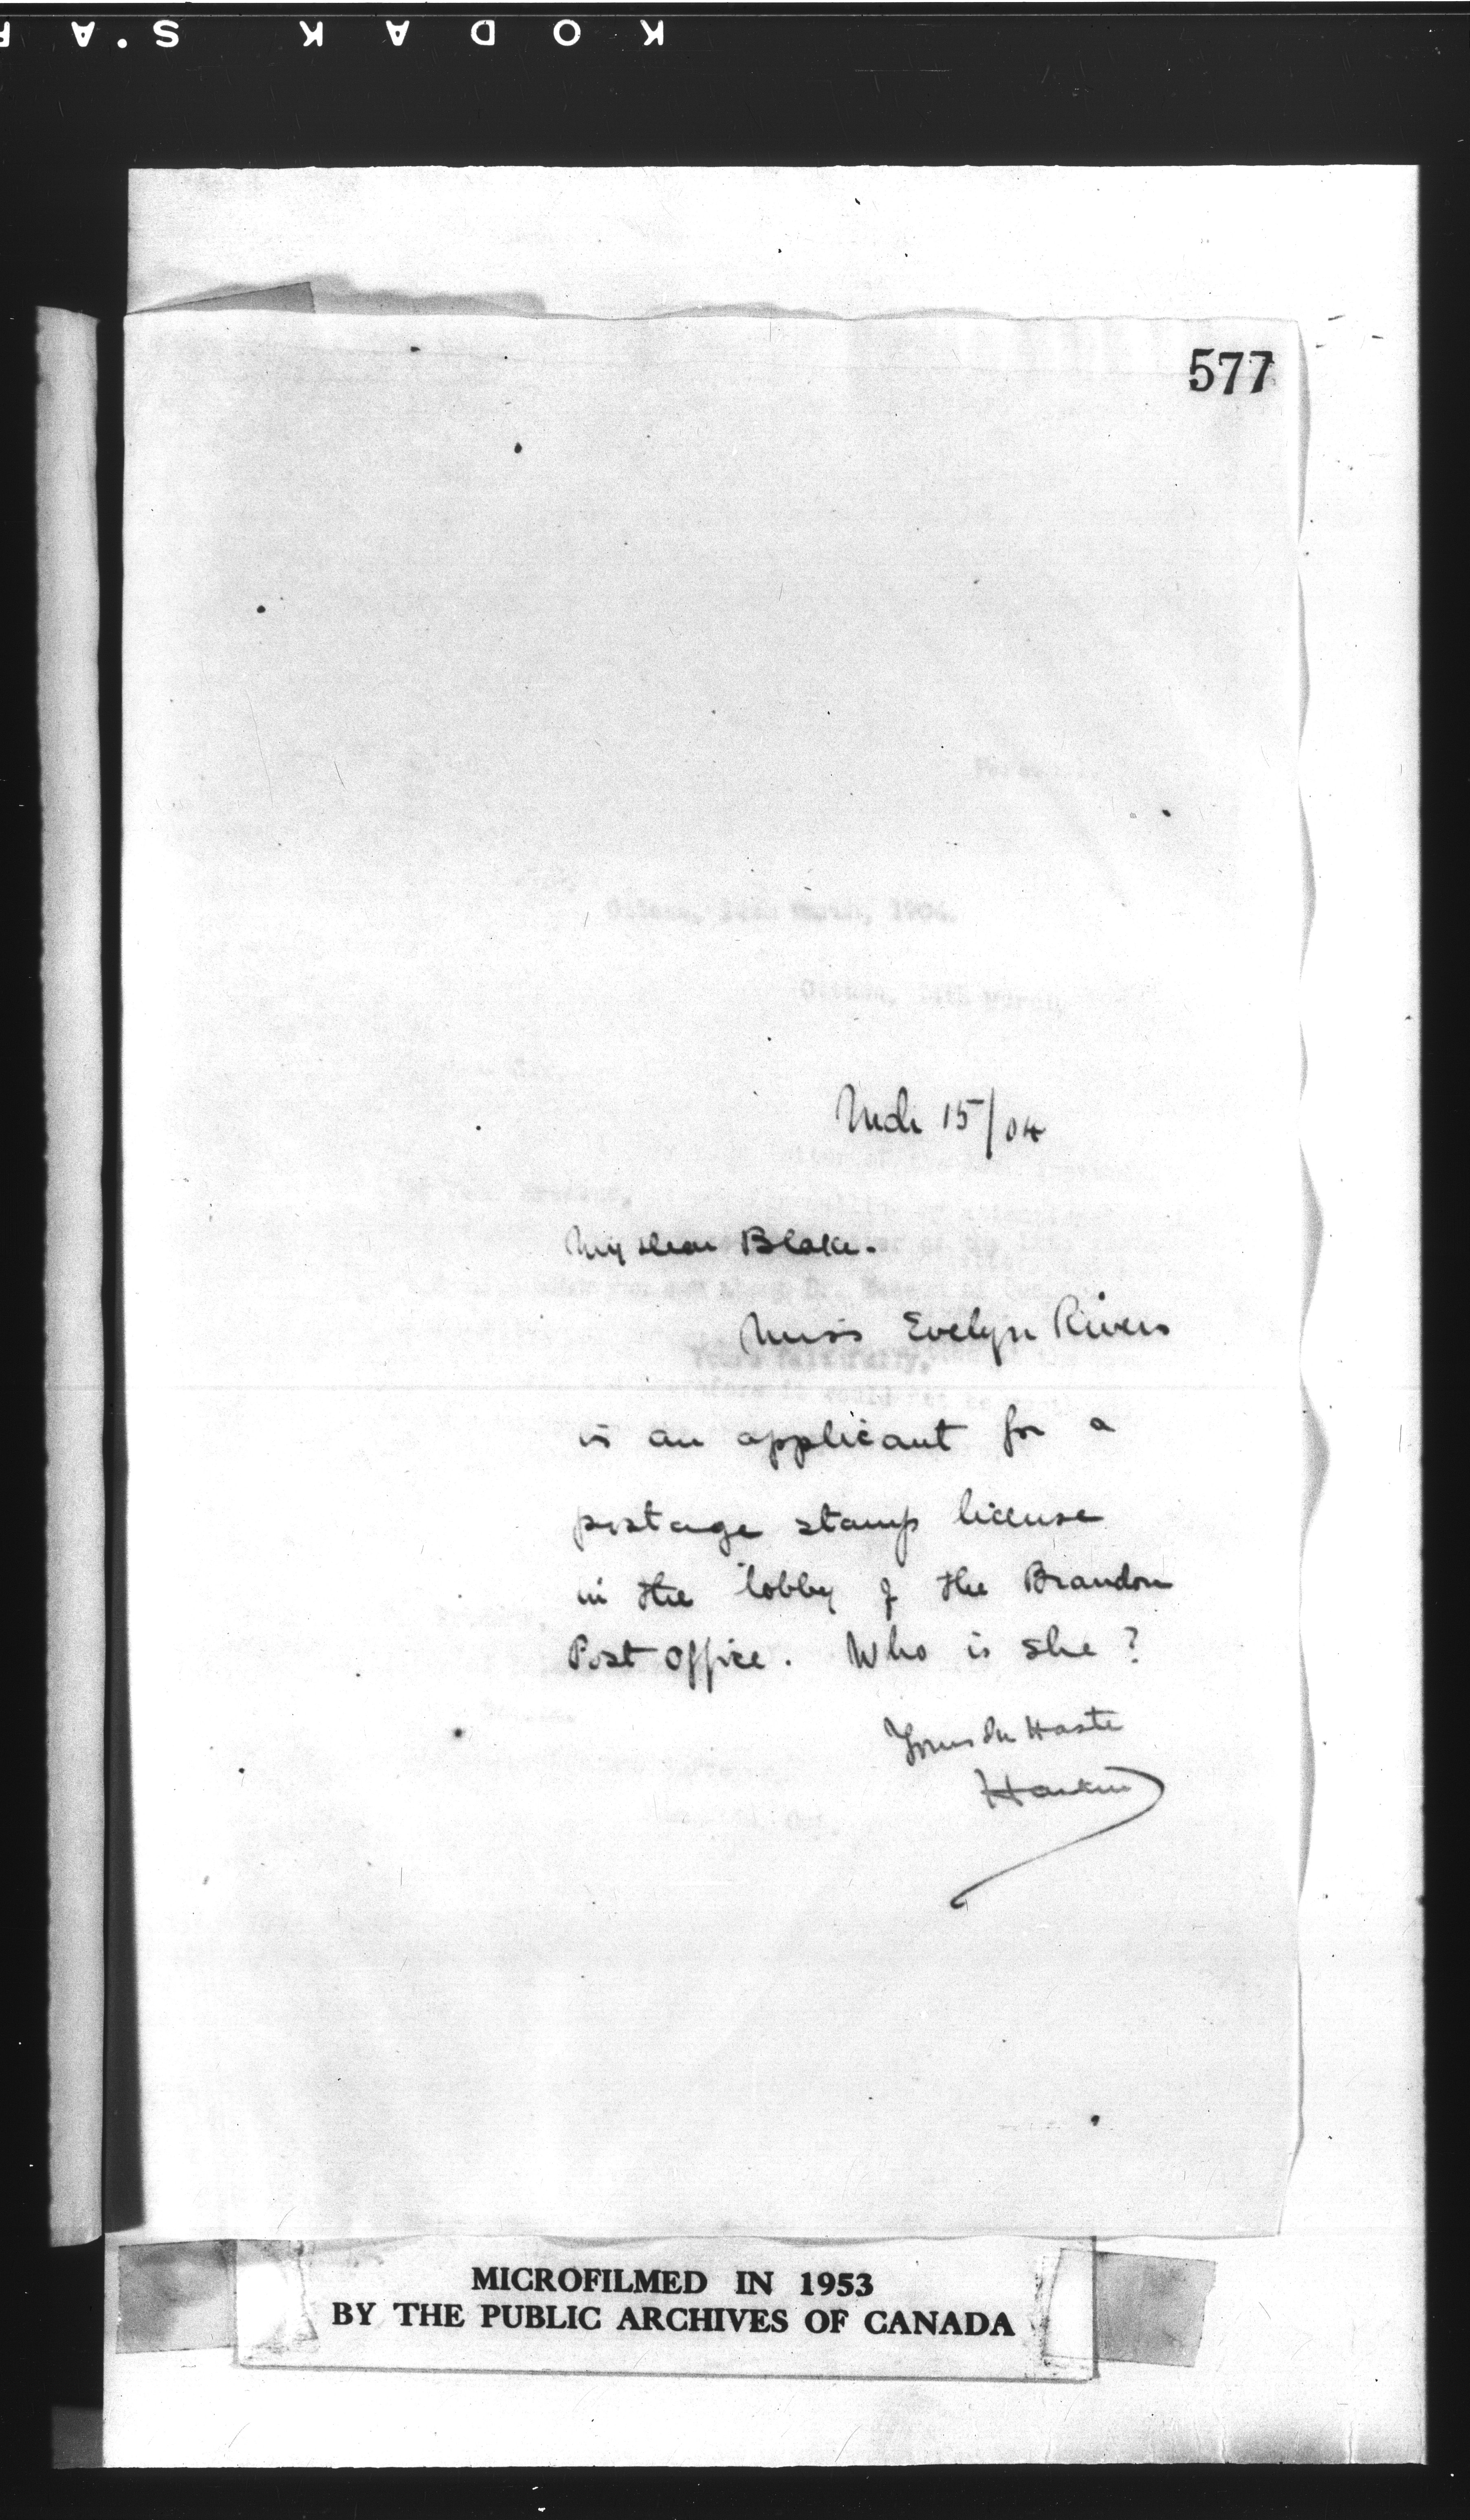 KODAK S.A
577
Mch 15/04
My dear Blake.
Miss Evelyn Rivers
is an applicant for a
postage stamp license
in the lobby of the Brandon
Post Office. Who is she?
Yours In Haste
Harkin
MICROFILMED IN 1953
BY THE PUBLIC ARCHIVES OF CANADA